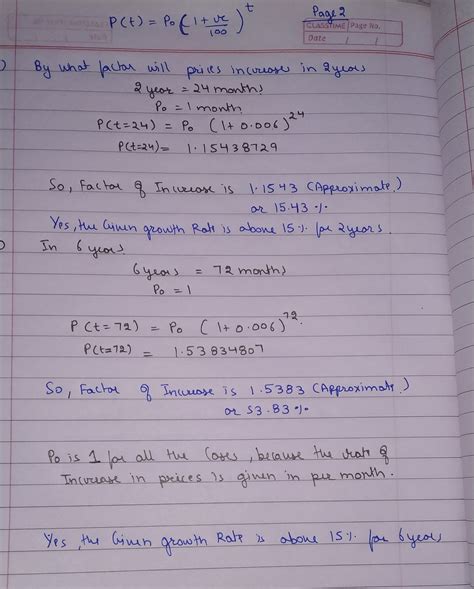 P(t) = P₀ (1 + r/100)^t
Page 2
CLASSTIME Page No.
Date / /
By what factor will prices increase in 2 years
2 year = 24 months
P₀ = 1 month
P(t=24) = P₀ (1 + 0.006)^24
P(t=24) = 1.15438729
So, Factor of Increase is 1.1543 (Approximate)
or 15.43 %
Yes, the Given growth Rate is above 15% for 2 years.
In 6 years.
6 years = 72 months
P₀ = 1
P(t=72) = P₀ (1 + 0.006)^72
P(t=72) = 1.53834807
So, Factor of Increase is 1.5383 (Approximate)
or 53.83 %
P₀ is 1 for all the Cases, because the rate of
Increase in prices is given in per month.
Yes, the Given growth Rate is above 15% for 6 years